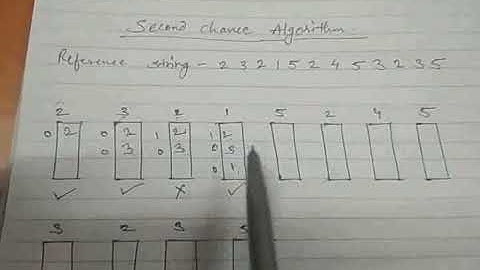 Second chance Algorithm.
Reference string - 2 3 2 1 5 2 4 5 3 2 3 5
2 3 2 1 5 2 4 5
0 2 0 2 1 2 1 2
0 3 0 3 0 3
0 1
✓ ✓ × ✓
3 2 3 5